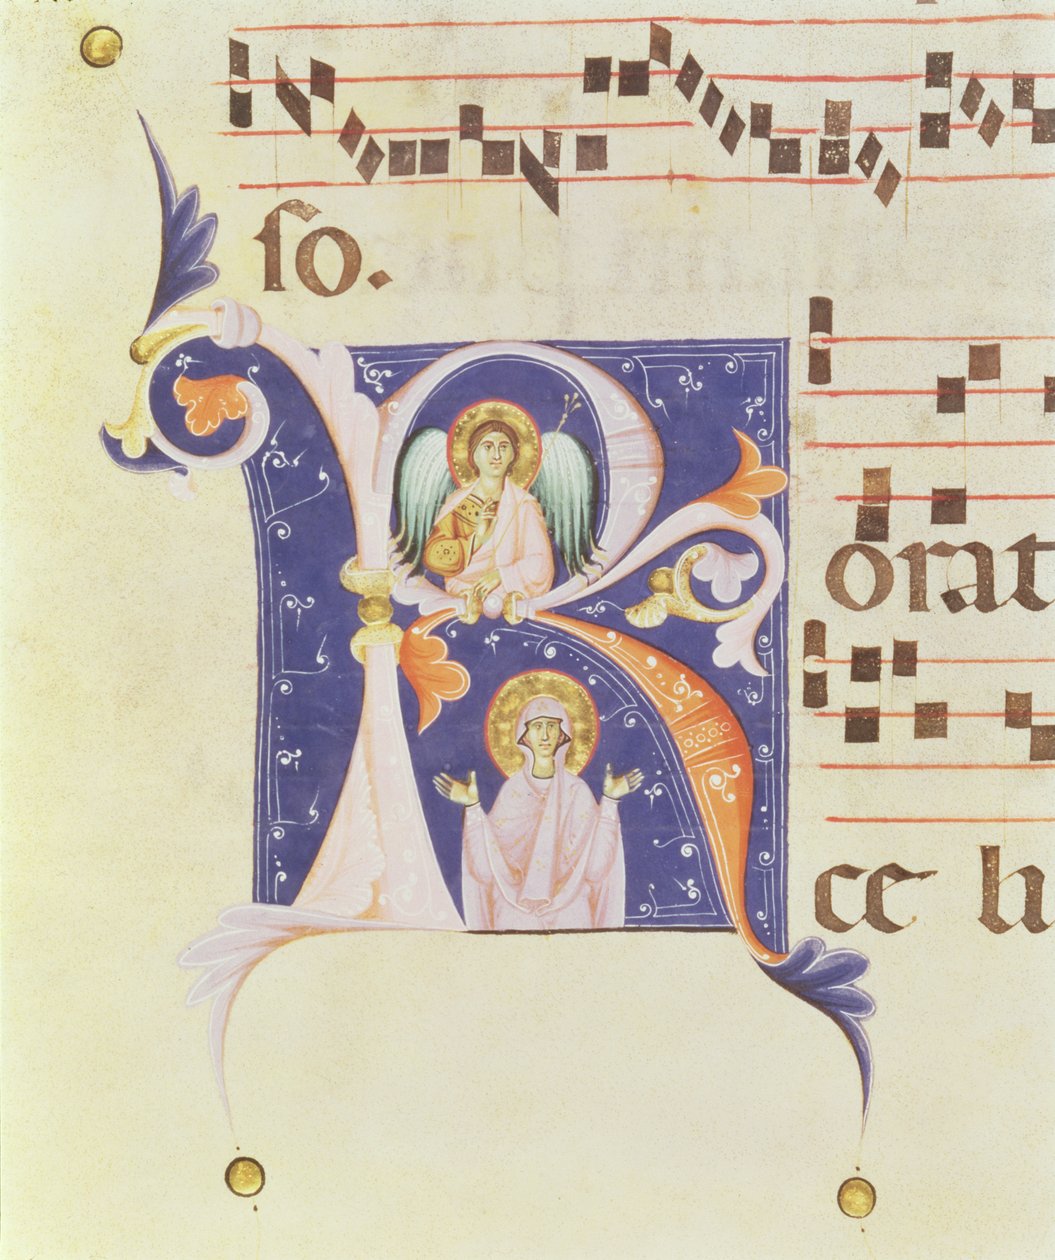 ſo.
R orat
ce h